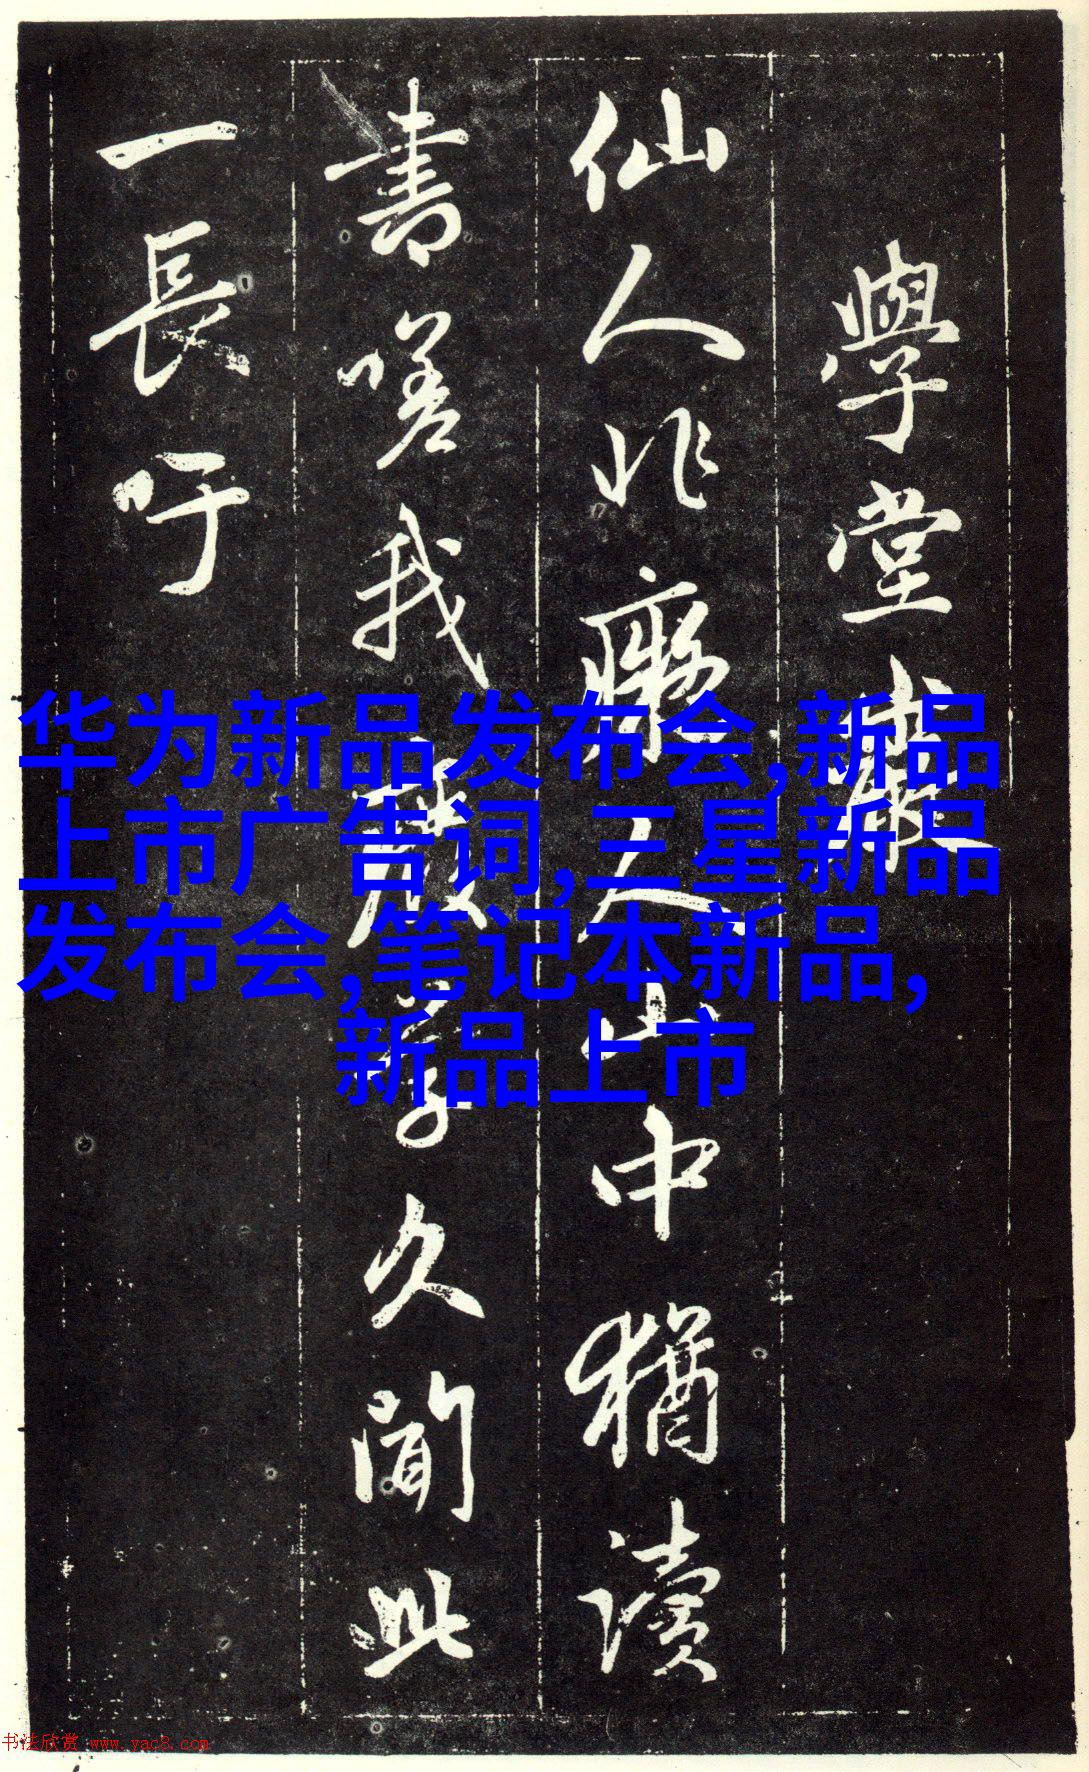 學堂巖
仙人非癡人山中猶讀
書嗟我廢學久聞此
一長吁
华为新品发布会,新品
上市广告词,三星新品
发布会,笔记本新品,
新品上市
书法欣赏 www.yac8.com